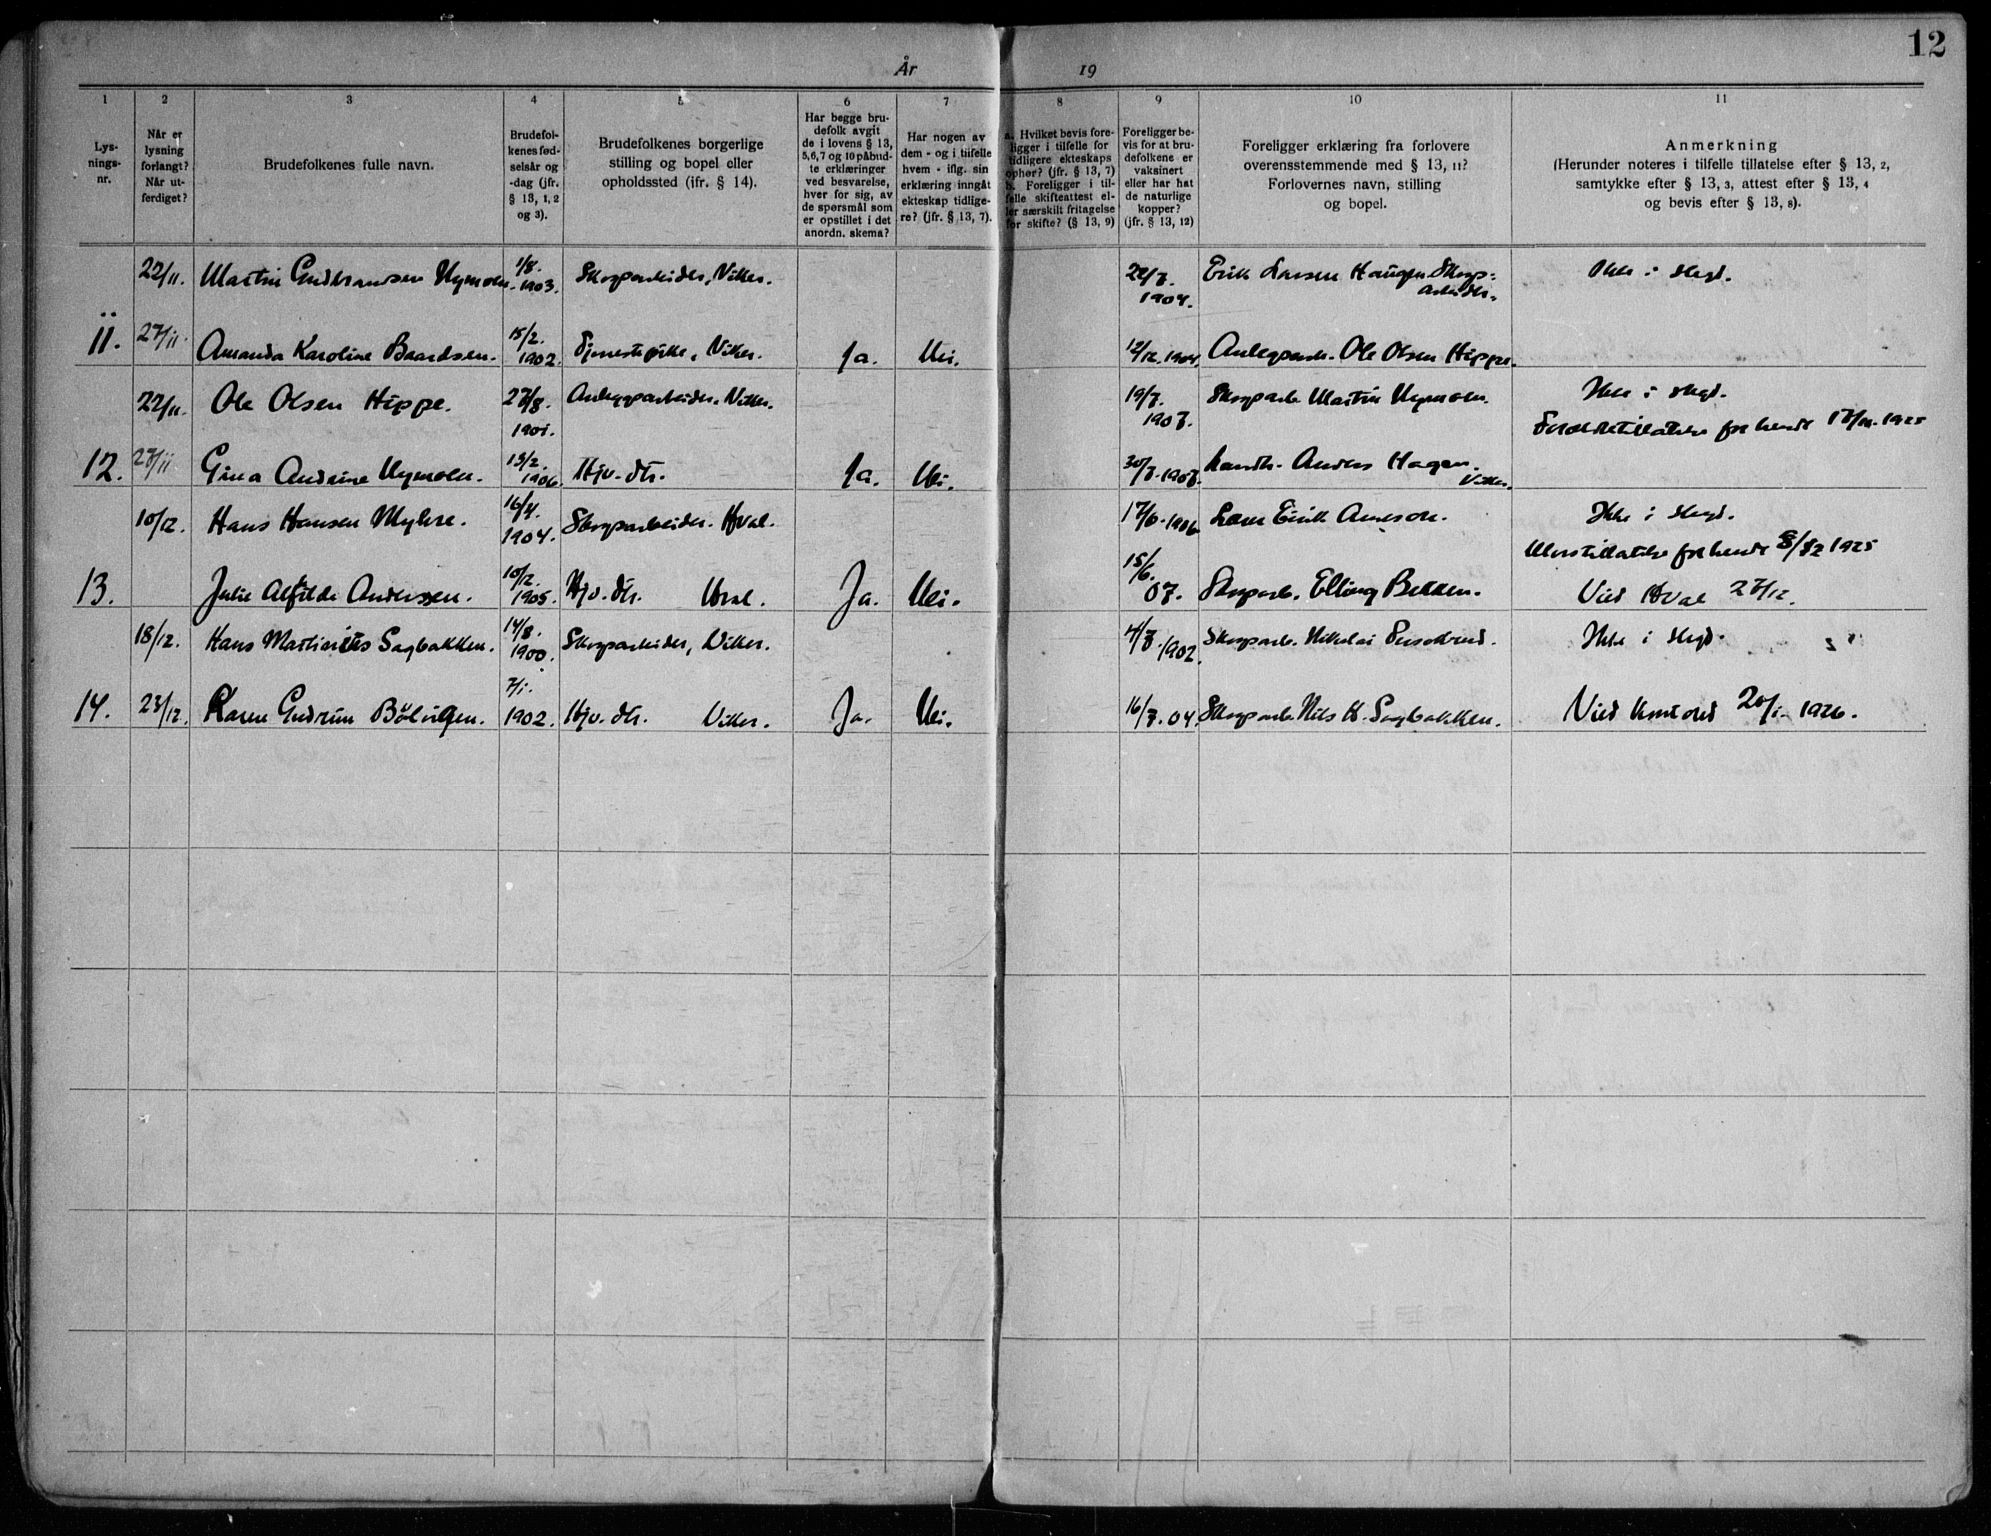 12
År 19
1 2 3 4 5 6 7 8 9 10 11
Lys-
nings-
nr.
Når er
lysning
forlangt?
Når ut-
ferdiget?
Brudefolkenes fulle navn.
Brudefol-
kenes fød-
selsår og
-dag (jfr.
§ 13, 1, 2
og 3).
Brudefolkenes borgerlige
stilling og bopel eller
opholdssted (ifr. § 14).
Har begge bru-
defolk avgit
de i lovens § 13,
5,6,7 og 10 påbud-
te erklæringer
ved besvarelse,
hver for sig, av
de spørsmål som
er opstillet i det
anordn. skema?
Har nogen av
dem - og i tilfelle
hvem - iflg. sin
erklæring inngåt
ekteskap tidlige-
re? (jfr. § 13, 7).
a. Hvilket bevis fore-
ligger i tilfelle for
tidligere ekteskaps
ophør? (jfr. § 13, 7)
b. Foreligger i til-
felle skifteattest el-
ler særskilt fritagelse
for skifte? (§ 13, 9)
Foreligger be-
vis for at bru-
defolkene er
vaksinert
eller har hat
de naturlige
kopper?
(jfr. § 13, 12)
Foreligger erklæring fra forlovere
overensstemmende med § 13, 11?
Forlovernes navn, stilling
og bopel.
Anmerkning
(Herunder noteres i tilfelle tillatelse efter § 13, 2,
samtykke efter § 13, 3, attest efter § 13, 4
og bevis efter § 13, 8).
22/11. Martin Gudbrandsen Nymoen. 1/8. 1903. Skogarbeider, Viker. 22/7. 1904. Erik Larsen Haugen Skog-
arbeider. Ikke i slegt.
11. 27/11. Amanda Karoline Baardsen. 15/2. 1902. Tjenestepike, Viker. Ja. Nei. 12/12. 1904. Anleggsarb. Ole Olsen Hippe.
22/11. Ole Olsen Hippe. 27/8. 1901. Anleggsarbeider. Viker. 19/7. 1907. Skogarb. Martin Nymoen. Ikke i slegt.
Foreldretillatelse for hende 1925
12. 27/11 Gina Andrine Nymoen. 13/2. 1906. Hjv. dtr. Ja. Nei. 30/7. 1907. Anders Hagen.
Viker.
10/12. Hans Hansen Myhre. 16/4. 1904. Skogarbeider. Hval. 17/6. 1906. Lars Eirik Arneson. Ikke i slegt.
for hende 1925
13. Julie Alfilde Anderssen. 10/12. 1905. Hjv. dtr. Hval. Ja. Nei. 15/6. 07. Skogarb. Elling Bekken. Vied Hval 27/12.
18/12. Hans Martinius Sagbakken. 14/8. 1900. Skogarbeider, Viker. 4/7. 1902. Skogarb. Nikolai Ikke i slegt.
14. 23/12. Karen Gudrun Bölvigen. 7/1. 1902. Hjv. dtr. Viker. Ja. Nei. 16/7. 04. Skogarb. Nils H. Sagbakken. Vied 20/1- 1926.